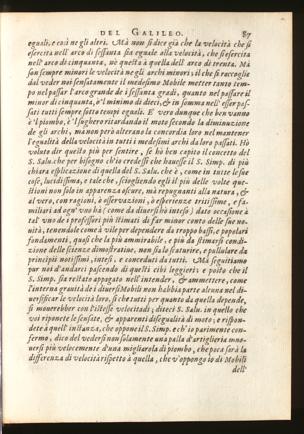 DEL GALILEO. 87
eguali, e così ne gli altri. Mà non si dice già che la velocità che si
esercita nell'arco di sessanta sia eguale alla velocità, che si esercita
nell'arco di cinquanta, nè questa à quella dell'arco di trenta. Mà
son sempre minori le velocità ne gli archi minori; il che si raccoglie
dal veder noi sensatamente il medesimo Mobile metter tanto tem-
po nel passar l'arco grande de i sessanta gradi, quanto nel passare il
minor di cinquanta, e'l minimo di dieci, & in somma nell'esser pas-
sati tutti sempre sotto tempi eguali. E' vero dunque che ben vanno
e'l piombo, e'l sughero ritardando il moto secondo la diminuzione
de gli archi, mà non però alterano la concordia loro nel mantener
l'egualità della velocità in tutti i medesimi archi da loro passati. Hò
voluto dir questo più per sentire, se hò ben capito il concetto del
S. Salu. che per bisogno ch'io credessi che hauesse il S. Simp. di più
chiara esplicazione di quella del S. Salu. che è, come in tutte le sue
cose, lucidissima, e tale che, sciogliendo egli il più delle volte que-
stioni non solo in apparenza oscure, mà repugnanti alla natura, & al
vero, con ragioni, ò osseruazioni, ò esperienze tritissime, e fa-
miliari ad ogn'vno hà (come da diuersi hò inteso) dato occasione à
tal'vno de i professori più stimati di far minor conto delle sue no-
uità, tenendole come à vile per dependere da troppo bassi, e popolari
fondamenti, quasi che la più ammirabile, e più da stimarsi condi-
zione delle scienze dimostratiue, non sia lo scaturire, e pullulare da
principii notissimi, intesi, e conceduti da tutti. Mà seguitiamo
pur noi d'andarci pascendo di questi cibi leggieri: e posto che il
S. Simp. sia restato appagato nell'intender, & ammettere, come
l'interna grauità de i diuersi Mobili non habbia parte alcuna nel di-
uersificar le velocità loro, sì che tutti per quanto da quella depende,
si mouerebber con l'istesse velocitadi; diteci S. Salu. in quello che
voi riponete le sensate, & apparenti disegualità di moto; e rispon-
dete à quell'instanza, che oppone il S. Simp. e ch'io parimente con-
fermo, dico del vedersi non solamente una palla d'artiglieria mno-
uersi più velocemente d'una migliarola di piombo, che poca sarà la
differenza di velocità rispetto à quella, che v'oppongo io di Mobili
dell'